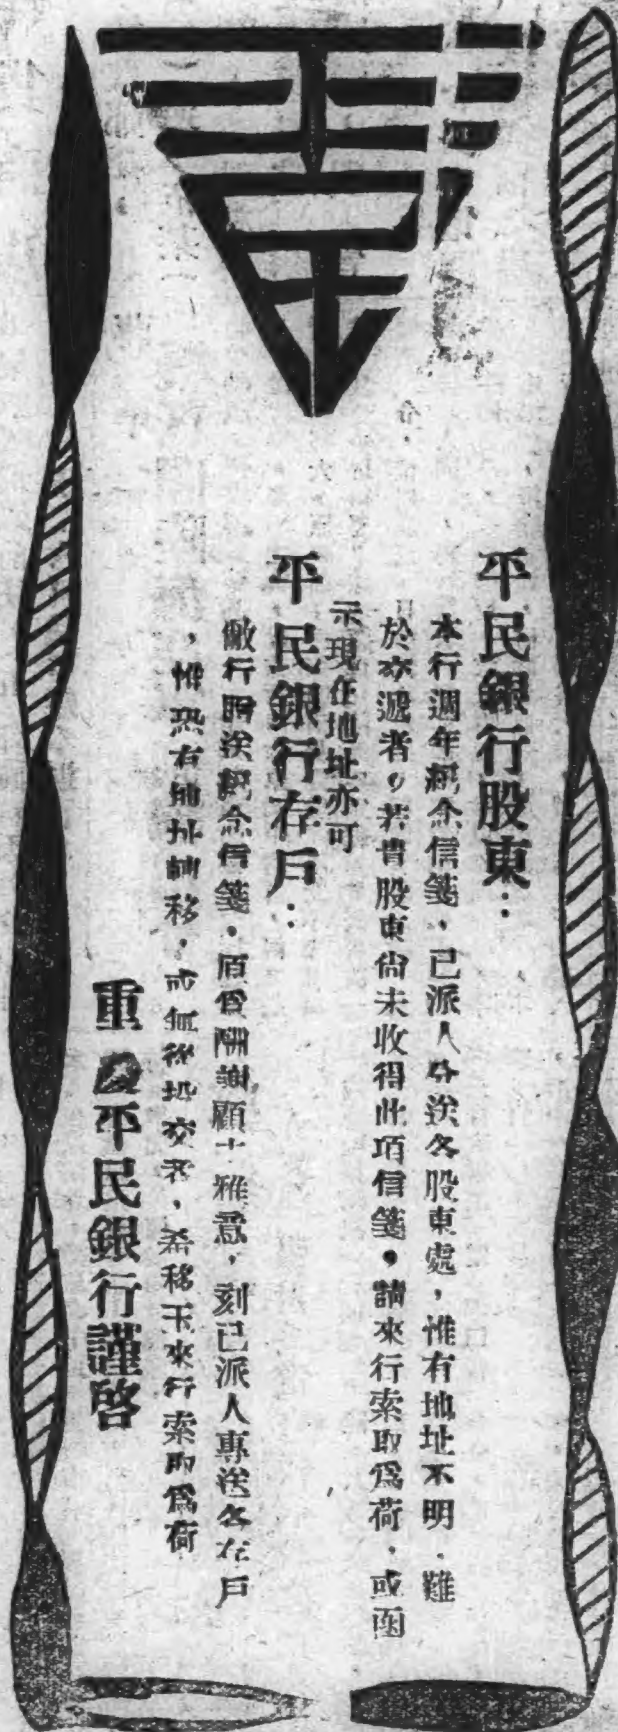 平民銀行股東：
本行週年紀念信箋，已派人分送各股東處，惟有地址不明，難
於交遞者，若貴股東尚未收得此項信箋，請來行索取爲荷，或函
示現在地址亦可
平民銀行存戶：
敝行贈送紀念信箋，原爲酬謝顧主雅意，刻已派人專送各存戶
，惟恐有地址轉移，或無從投交者，希移玉來行索取爲荷
重慶平民銀行謹啓